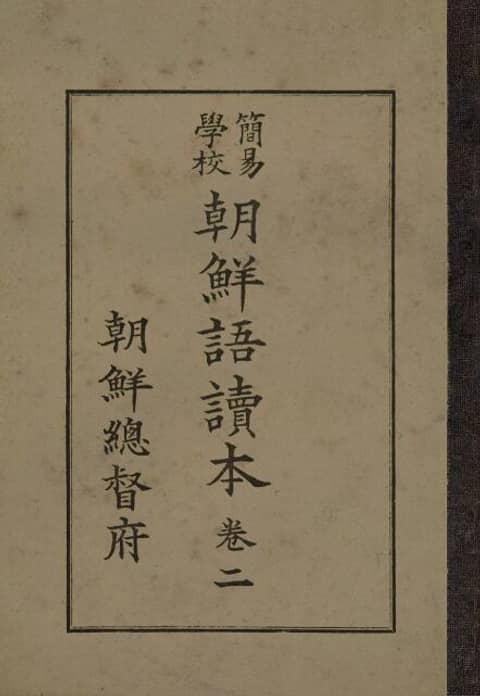 簡易
學校
朝鮮語讀本 卷二
朝鮮總督府